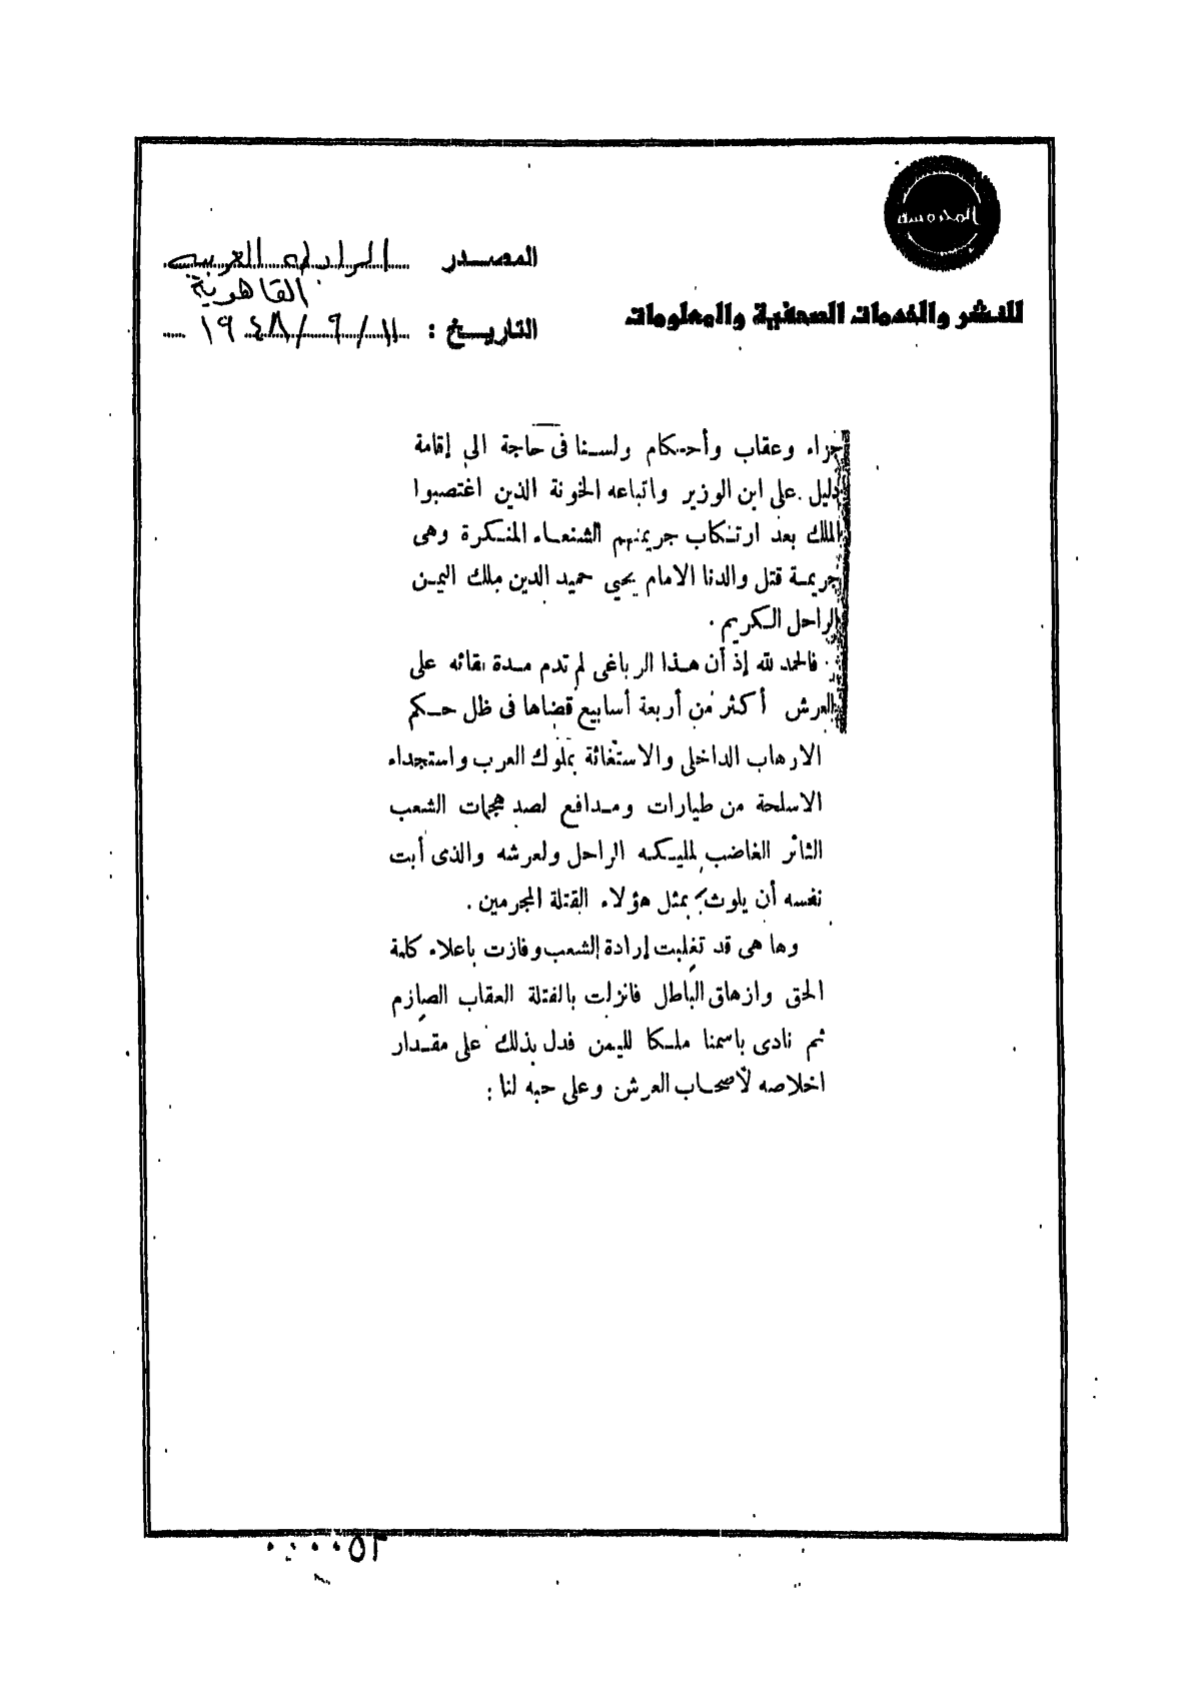 المحروسة
المصدر الرابطة العربية
القاهرية
للنشر والخدمات الصحفية والمعلومات
التاريخ : ١١/ ٦ / ١٩٤٨
جزاء وعقاب وأحكام ولسنا فى حاجة الى إقامة
دليل على ابن الوزير واتباعه الخونة الذين اغتصبوا
الملك بعد ارتكاب جريمتهم الشنعاء المنكرة وهى
جريمة قتل والدنا الامام يحيى حميد الدين ملك اليمن
الراحل الكريم .
فالحمد لله إذ أن هذا الرباغى لم تدم مدة بقائه على
العرش أكثر من أربعة أسابيع قضاها فى ظل حكم
الارهاب الداخلى والاستغاثة بملوك العرب واستجداء
الاسلحة من طيارات ومدافع لصد هجمات الشعب
الثائر الغاضب لمليكه الراحل ولعرشه والذى أبت
نفسه أن يلوث بمثل هؤلاء القتلة المجرمين .
وها هى قد تغلبت إرادة الشعب وفازت باعلاء كلمة
الحق وازهاق الباطل فانزلت بالقتلة العقاب الصارم
ثم نادى باسمنا ملكا لليمن فدل بذلك على مقدار
اخلاصه لأصحاب العرش وعلى حبه لنا :